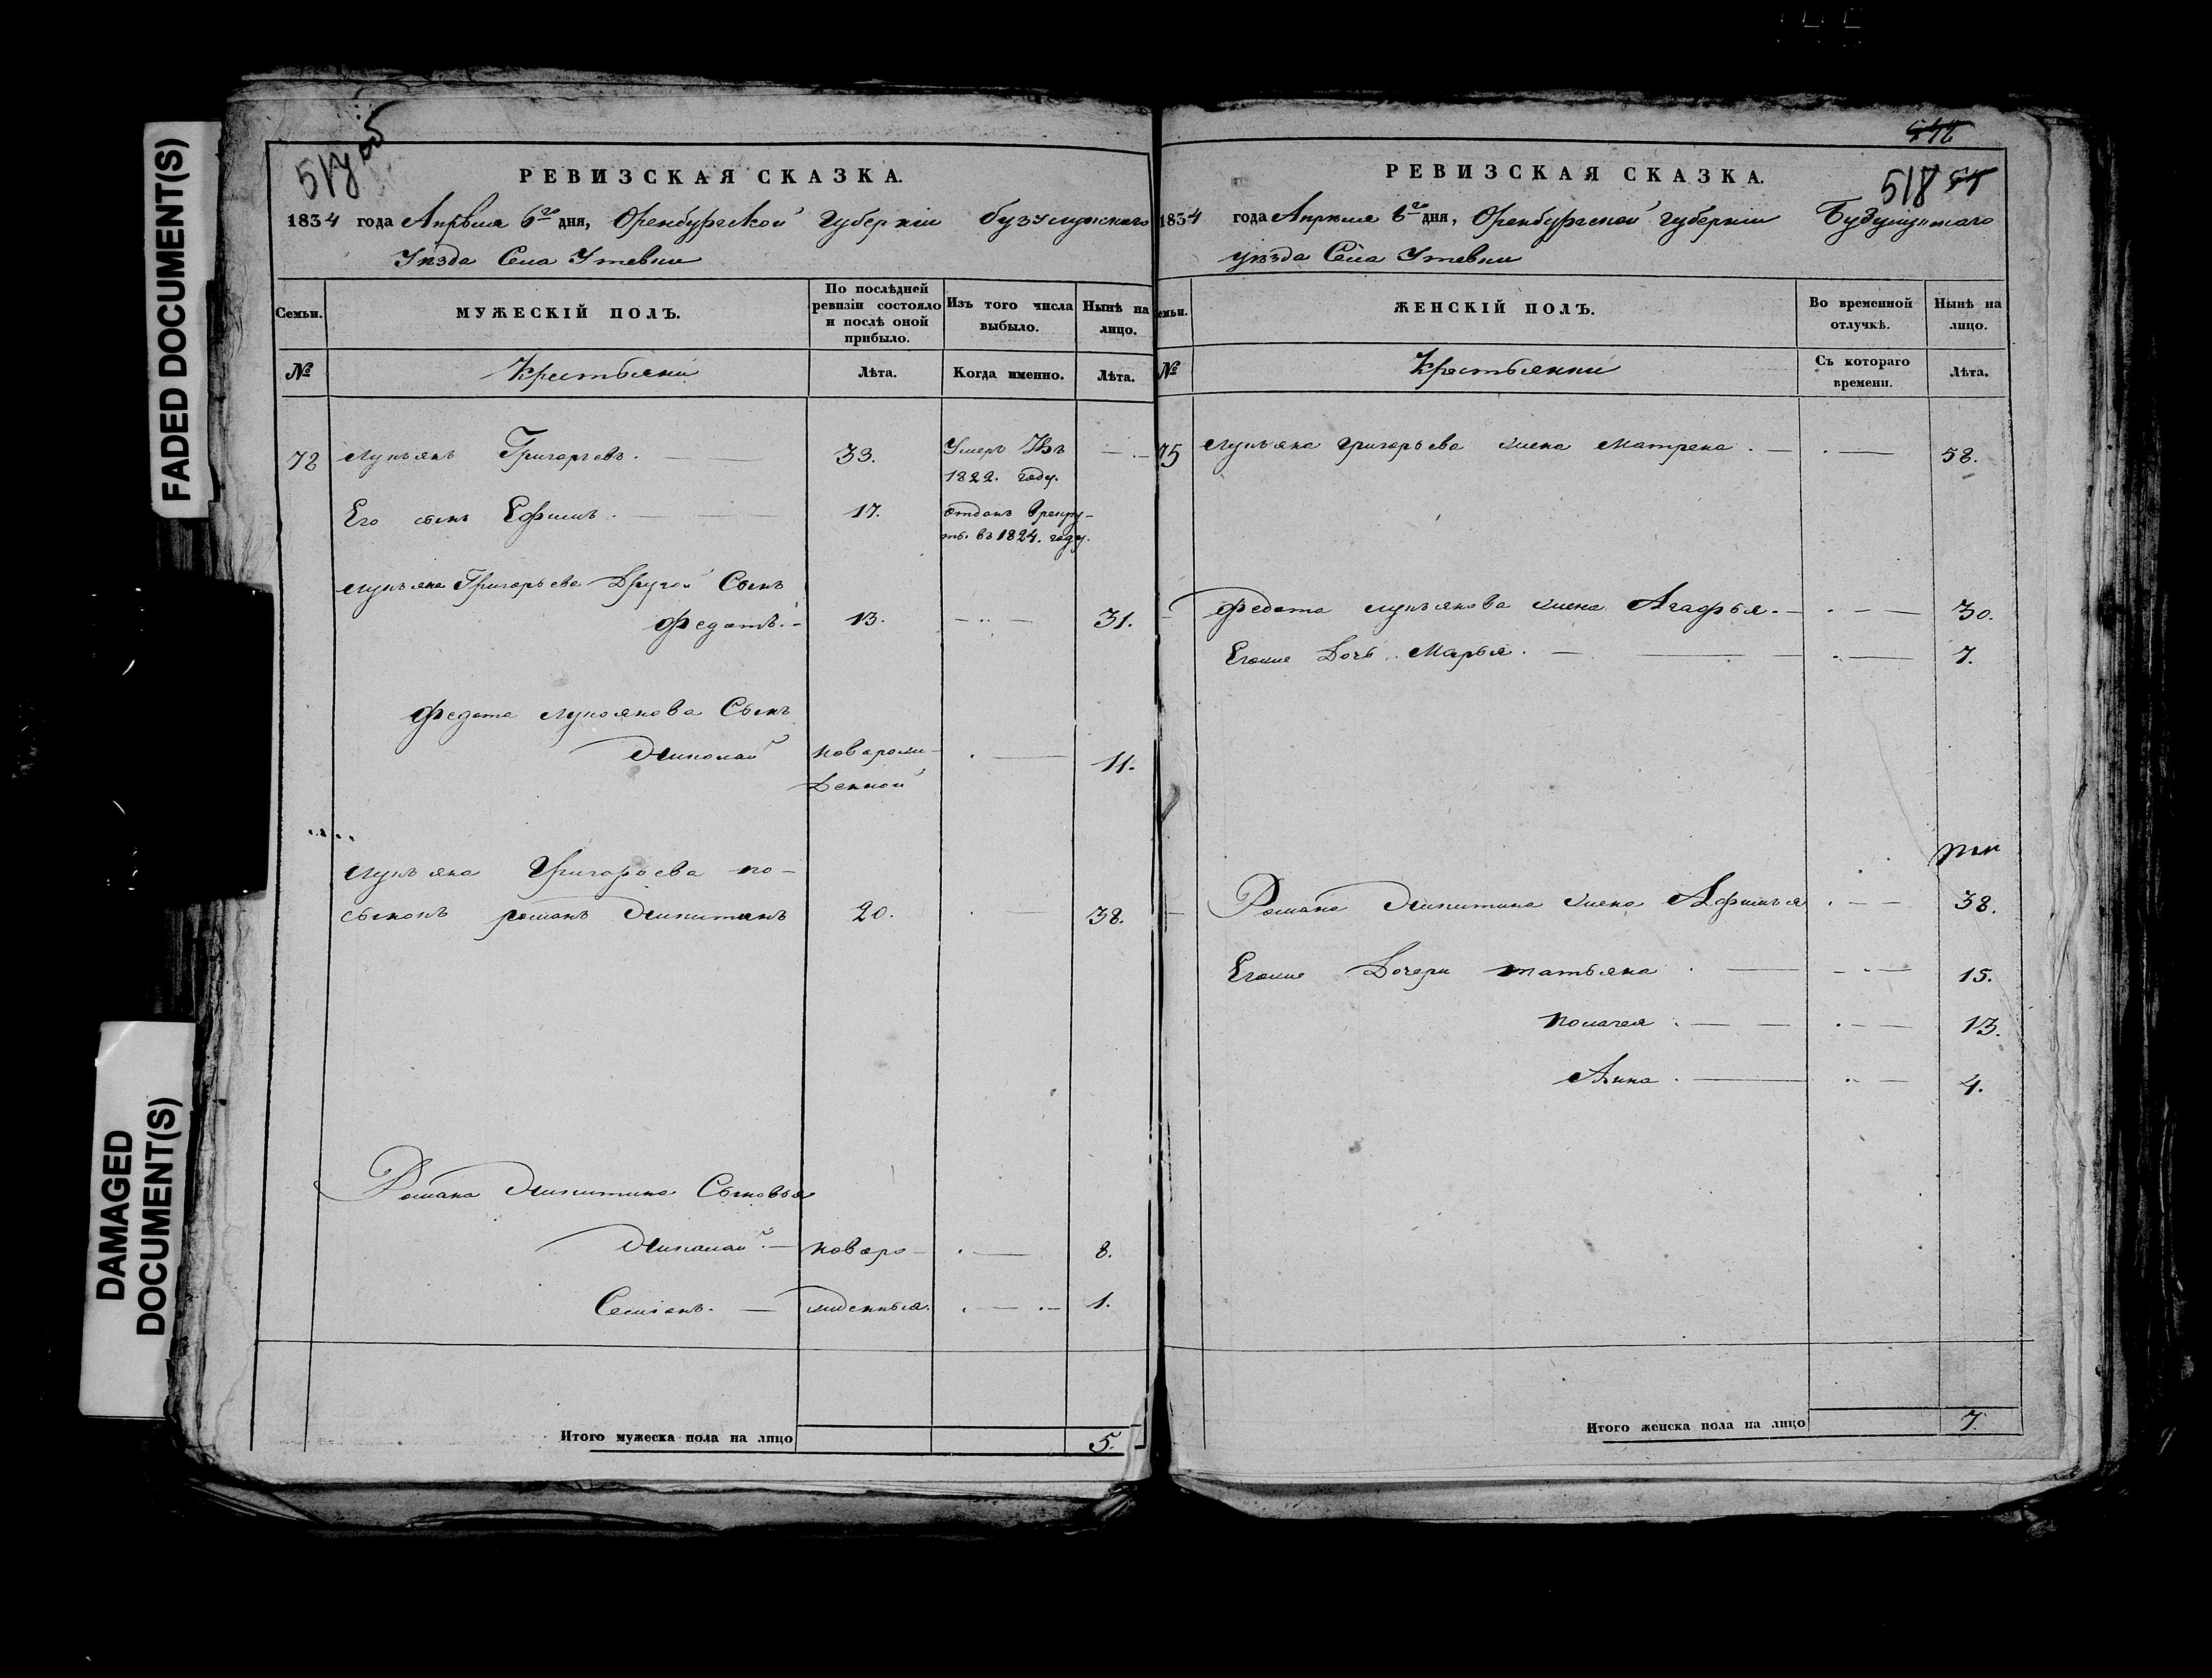 FADED DOCUMENT(S)
DAMAGED
DOCUMENT(S)
517 об
РЕВИЗСКАЯ СКАЗКА.
1834 года Апреля 6го дня, Оренбургской Губерніи бузулукскаго
Уезда Села Утевки
Семьи.
МУЖЕСКІЙ ПОЛЪ.
По послѣдней
ревизіи состояло
и послѣ оной
прибыло.
Изъ того числа
выбыло.
Нынѣ на
лицо.
№
Крестьяни
Лѣта.
Когда именно.
Лѣта.
72 Лукъянъ Григорьевъ. 33. Умеръ въ
1822. году.
Его сынъ Ефимъ. 17. отданъ Врекру-
ты. въ 1824. году.
Лукъяна Григорьева Другой Сынъ
Федотъ. 13. 31.
Федота Лукоянова Сынъ
Николай новорож-
Денной 11.
Лукъяна Григорьева по-
сынокъ романъ Никитинъ 20. 38.
Романа Никитина Сыновья
Николай. новоро- 8.
Семіонъ. жденныя. 1.
Итого мужеска пола на лицо 5.
518
РЕВИЗСКАЯ СКАЗКА.
1834 года Апреля 6го дня, Оренбургской Губерніи Бузулукскаго
уезда Села Утевки
емьи.
ЖЕНСКІЙ ПОЛЪ.
Во временной
отлучкѣ.
Нынѣ на
лицо.
№
Крестьянки
Съ котораго
времени.
Лѣта.
75 Лукъяна григорьева жена Матрена. 58.
Федота лукъянова жена Агафья. 30.
Егоже Дочь Марья. 7.
Романа Никитина жена Афимья 38.
Егоже Дочери татьяна 15.
полагея 13.
Анна 4.
Итого женска пола на лицо 7.